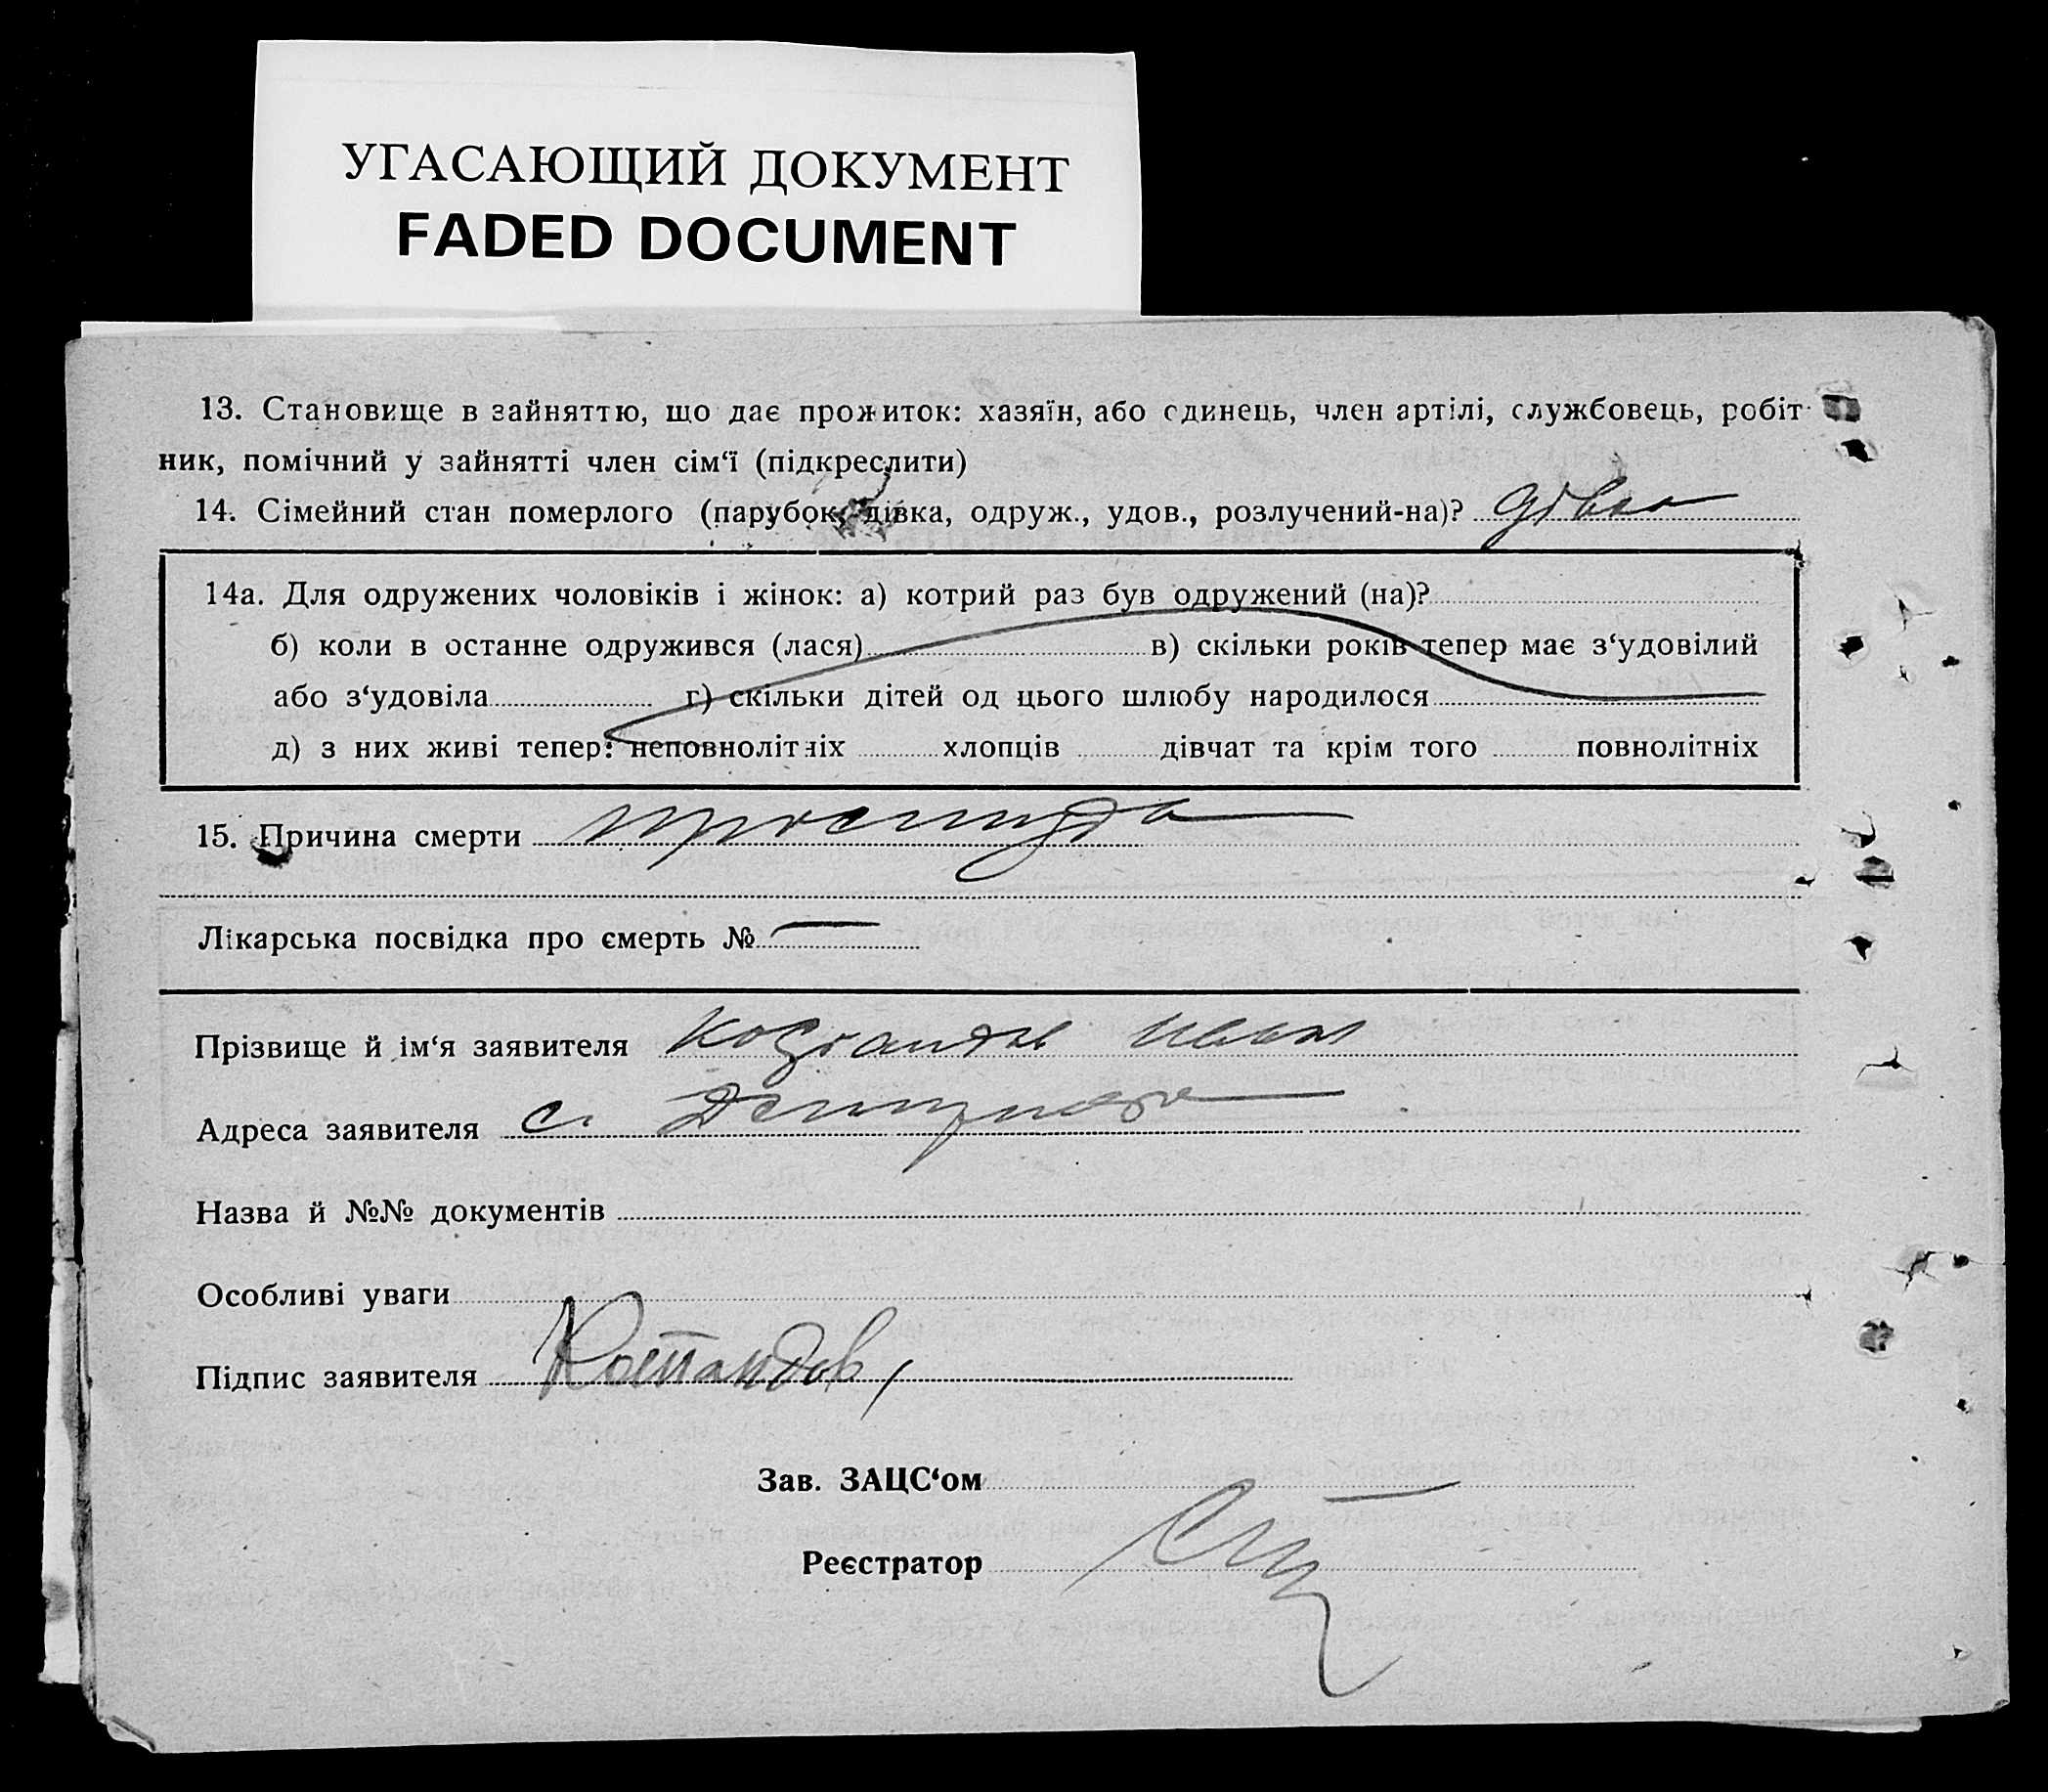 УГАСАЮЩИЙ ДОКУМЕНТ
FADED DOCUMENT
13. Становище в зайняттю, що дає прожиток: хазяїн, або єдинець, член артілі, службовець, робіт-
ник, помічний у зайнятті член сім‘ї (підкреслити)
14. Сімейний стан померлого (парубок, дівка, одруж., удов., розлучений-на)? дівка
14а. Для одружених чоловіків і жінок: а) котрий раз був одружений (на)?
б) коли в останне одружився (лася) в) скільки років тепер має з‘удовілий
або з‘удовіла г) скільки дітей од цього шлюбу народилося
д) з них живі тепер: неповнолітніх хлопців дівчат та крім того повнолітніх
15. Причина смерти простуда
Лікарська посвідка про смерть № —
Прізвище й ім‘я заявителя Иван
Адреса заявителя с.
Назва й №№ документів
Особливі уваги
Підпис заявителя Костандов
Зав. ЗАЦС‘ом
Реєстратор